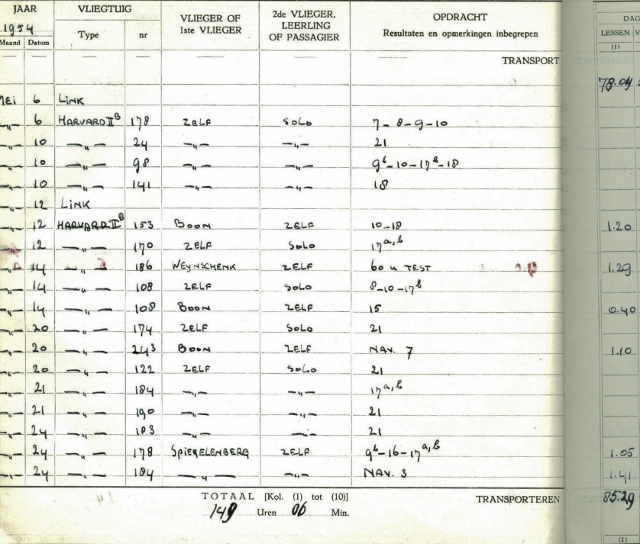 JAAR VLIEGTUIG VLIEGER OF 1ste VLIEGER 2de VLIEGER, LEERLING OF PASSAGIER OPDRACHT DAG
1954 Type nr Resultaten en opmerkingen inbegrepen LESSEN
Maand Datum (1)
TRANSPORT 78.09
MEI 6 LINK
-„- 6 HARVARD II B 178 ZELF SOLO 7-8-9-10
-„- 10 -„- 24 -„- -„- 21
-„- 10 -„- 98 -„- -„- 9b-10-17b-18
-„- 10 -„- 141 -„- -„- 18
-„- 12 LINK
-„- 12 HARVARD II B 153 BOON ZELF 10-18 1.20
-„- 12 -„- 170 ZELF SOLO 17a,b
-„- 14 -„- 186 WEYNSCHENK ZELF 60 u TEST 1.29
-„- 14 -„- 108 ZELF SOLO 8-10-17b
-„- 14 -„- 108 BOON ZELF 15 0.40
-„- 20 -„- 174 ZELF SOLO 21
-„- 20 -„- 243 BOON ZELF NAV. 7 1.10
-„- 20 -„- 122 ZELF SOLO 21
-„- 21 -„- 184 -„- -„- 17a,b
-„- 21 -„- 190 -„- -„- 21
-„- 24 -„- 183 -„- -„- 21
-„- 24 -„- 178 SPIEKELENBERG ZELF 9b-16-17a,b 1.05
-„- 24 -„- 184 -„- -„- NAV. 3 1.41
TOTAAL [Kol. (1) tot (10)] TRANSPORTEREN 85.29
149 Uren 06 Min.
(1)